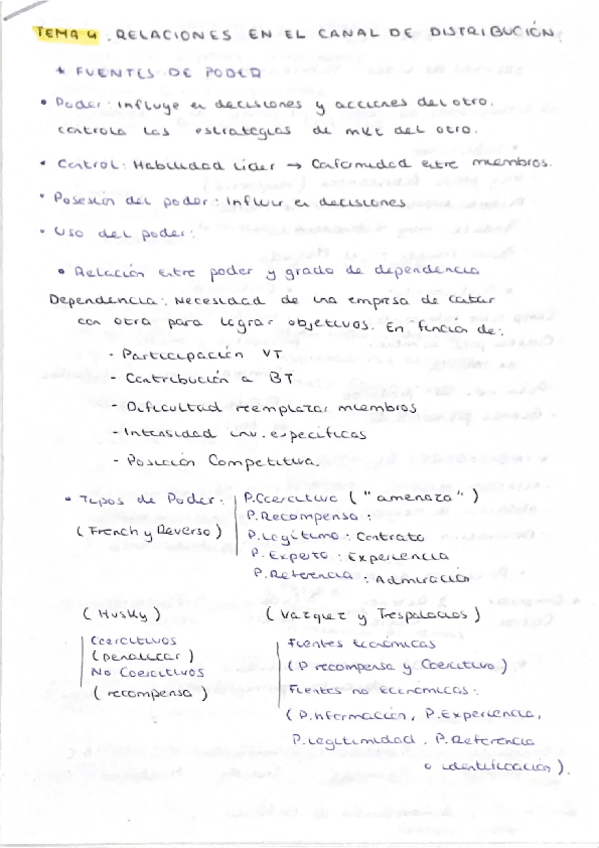 TEMA 4. RELACIONES EN EL CANAL DE DISTRIBUCIÓN.
* FUENTES DE PODER
• Poder: Influye en decisiones y acciones del otro.
controla las estrategias de mkt del otro.
• Control: Habilidad líder → Conformidad entre miembros.
• Posesión del poder: Influir en decisiones
• Uso del poder:
• Relación entre poder y grado de dependencia
Dependencia: Necesidad de una empresa de contar
con otra para lograr objetivos. En función de:
- Participación VT
- Contribución a BT
- Dificultad reemplazar miembros
- Intensidad inv. específicas
- Posición Competitiva.
• Tipos de Poder: P. Coercitivo ("amenaza")
P. Recompensa:
(French y Raverso) P. Legítimo: Contrato
P. Experto: Experiencia
P. Referencia: Admiración
(Husky) (Vazquez y Trespalacios)
Coercitivos Fuentes económicas
(penalizar) (P recompensa y Coercitivo)
No Coercitivos Fuentes no económicas:
(recompensa) (P. información, P. Experiencia,
P. Legitimidad, P. Referencia
o identificación).